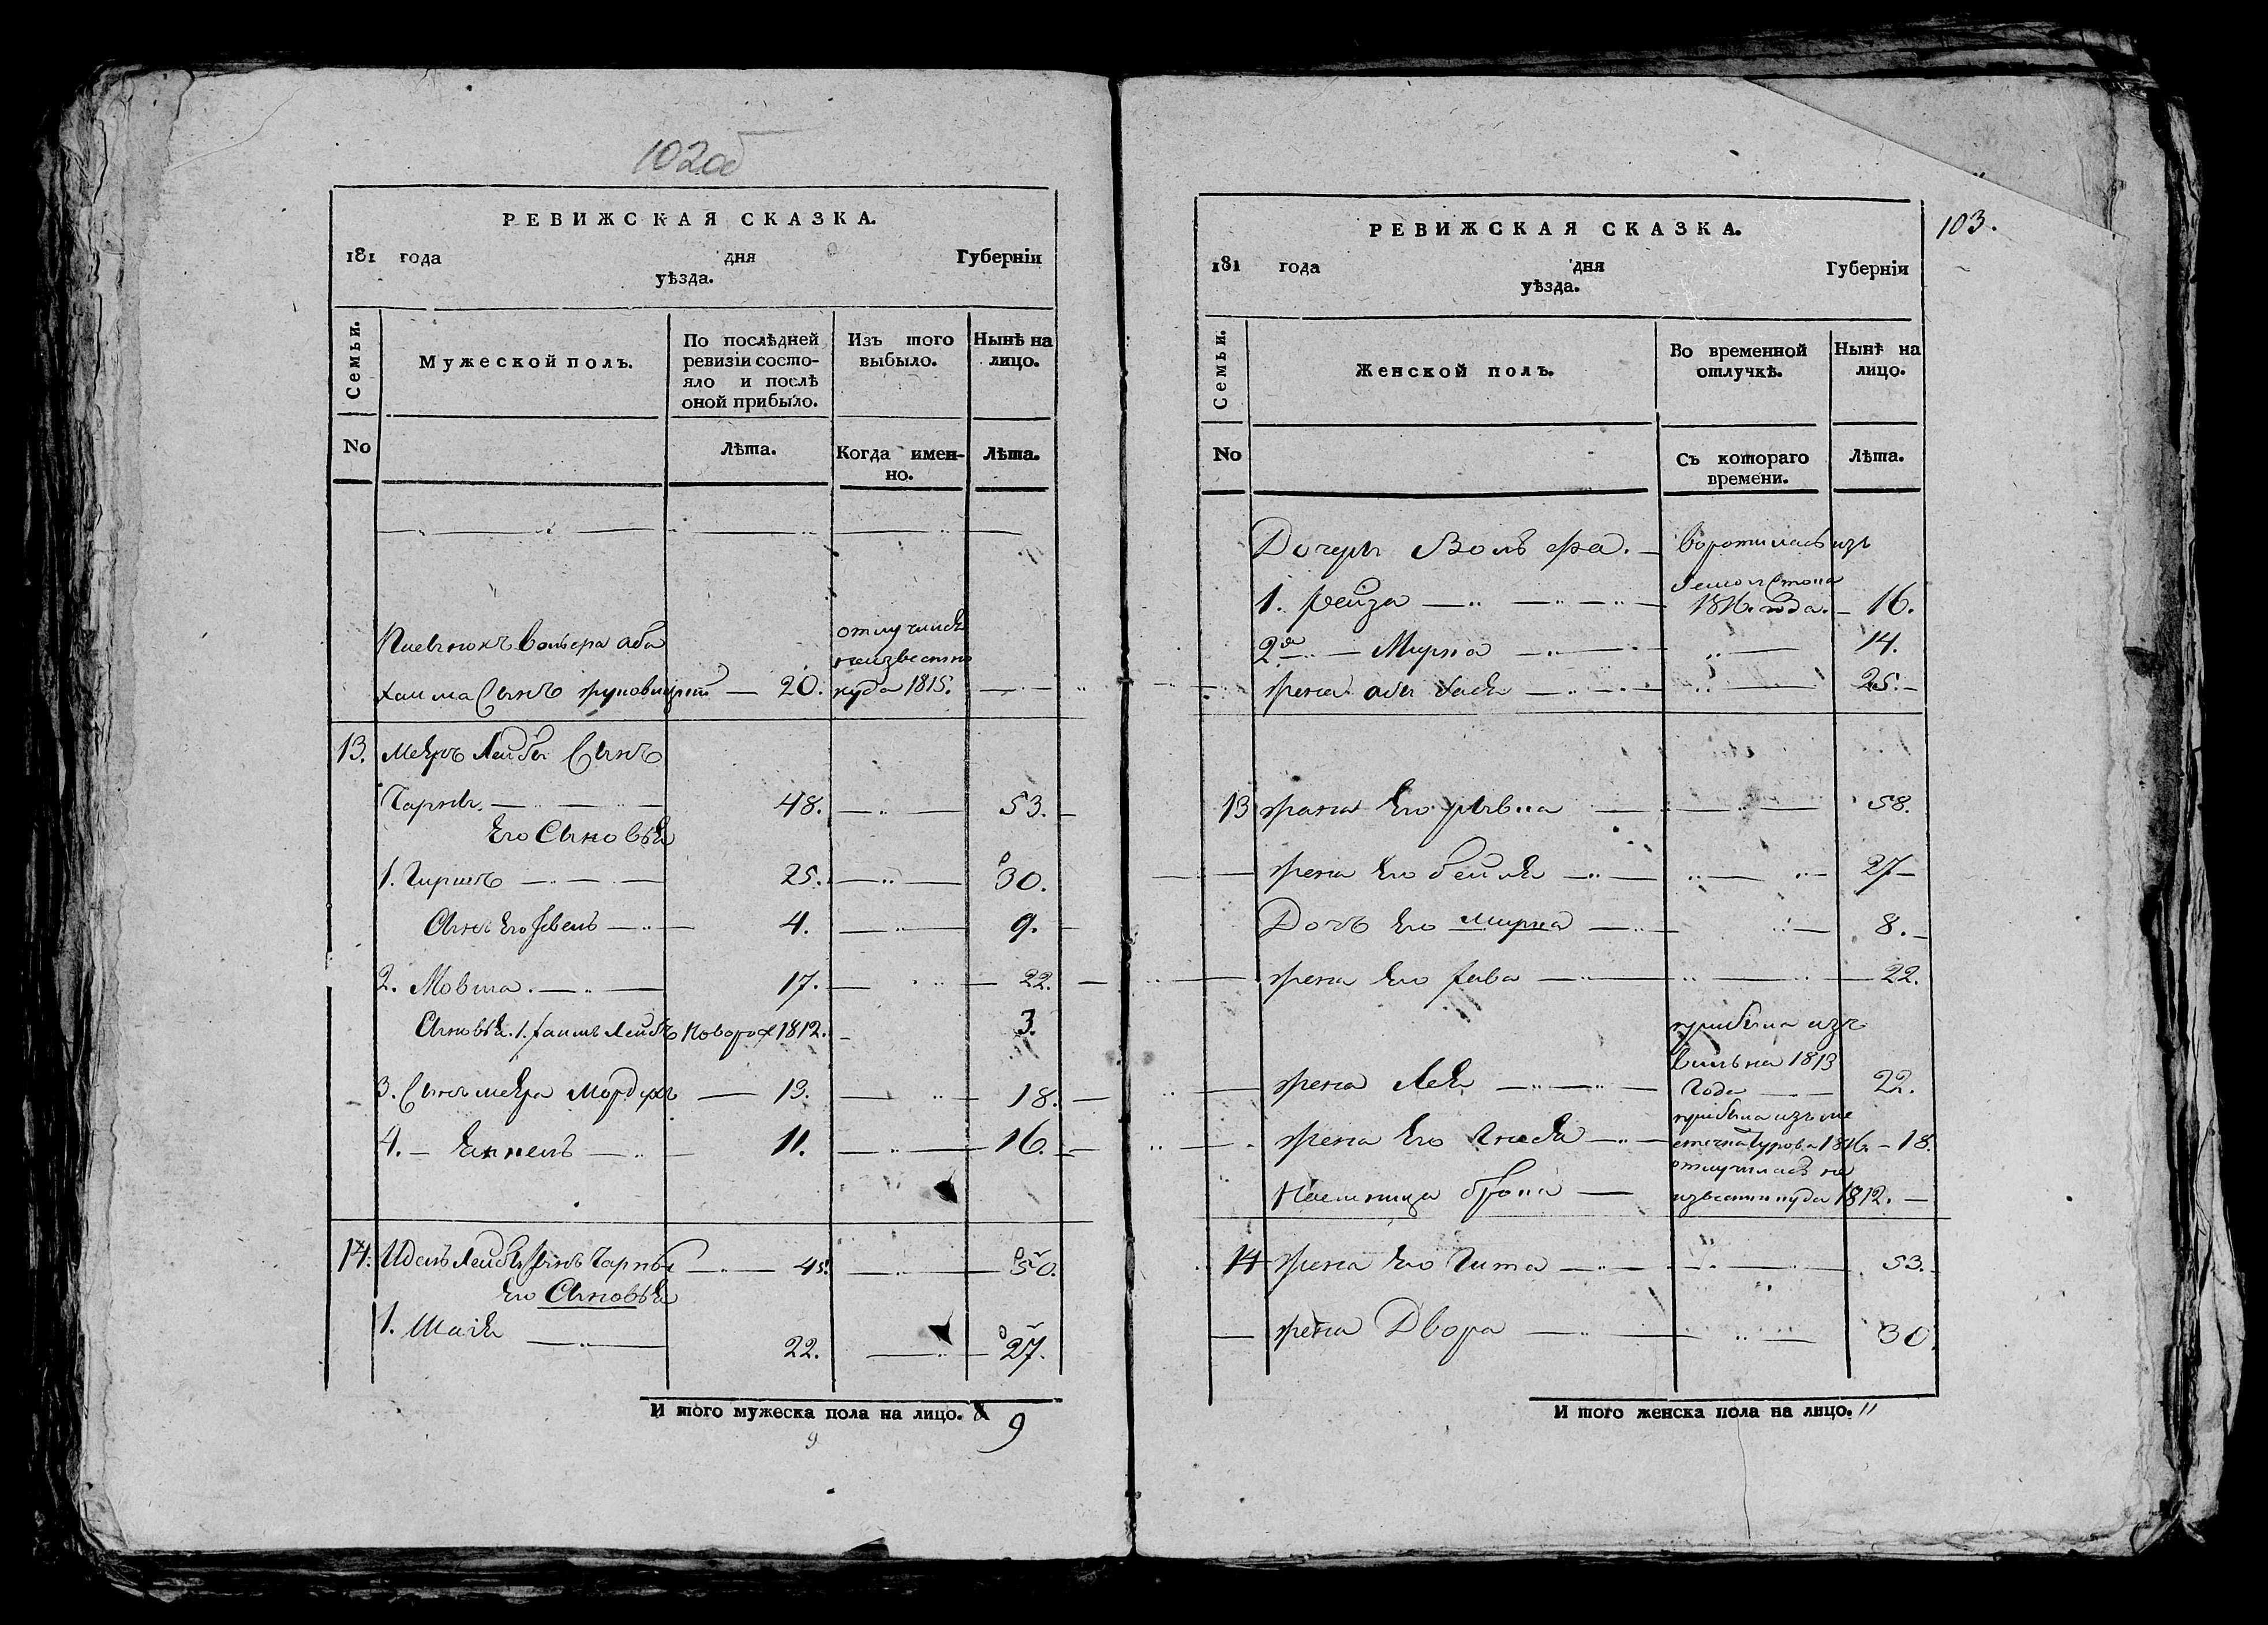 102об
РЕВИЖСКАЯ СКАЗКА.
181 года дня Губерніи
уѣзда.
Семьи.
Мужеской полъ.
По послѣдней
ревизіи состо-
яло и послѣ
оной прибыло.
Изъ того
выбыло.
Нынѣ на
лицо.
No
Лѣта.
Когда имен-
но.
Лѣта.
отлучился
неизвестно
Хаима Сынъ 20. куда 1815.
13. Мееръ Лейбы Сынъ
Чарны. 48. 53.
Его Сыновья
1. Гиршъ 25. 30.
Сынъ Его 4. 9.
2. Мовша. 17. 22.
Сыновья. 1. Хаимъ Лейбъ новорож 1812. 3.
3. Сынъ Меера Мордухъ 13. 18.
4. Янкель 11. 16.
14. Идель Лейбы Сынъ Чарны 45. 50.
Его Сыновья
1. Шая 22. 27.
И того мужеска пола на лицо. 9
9
103.
РЕВИЖСКАЯ СКАЗКА.
181 года дня Губерніи
уѣзда.
Семьи.
Женской полъ.
Во временной
отлучкѣ.
Нынѣ на
лицо.
No
Съ котораго
времени.
Лѣта.
Дочери Вольфа. воротилась изъ
1. Рейза 1816. года. 16.
2я Мирка 14.
жена Абы Хася 25.
13 жена Его Ривка 58.
жена Его Бейля 27
Дочь Его Мирка 8.
жена Его 22.
прибыла изъ
Вильна 1813
жена Лея года 22.
прибыла изъ ме
жена Его стечка Турова 1816. 18.
отлучилась не
известно куда 1812.
14 жена Его Гита 53.
жена Двора 30.
И того женска пола на лицо. 11